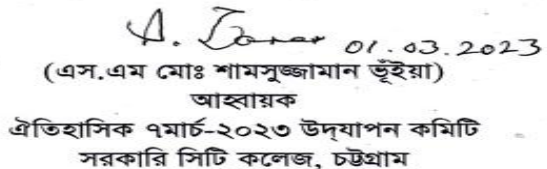 01.03.2023
(এস.এম মোঃ শামসুজ্জামান ভূঁইয়া)
আহবায়ক
ঐতিহাসিক ৭মার্চ-২০২৩ উদ্‌যাপন কমিটি
সরকারি সিটি কলেজ, চট্টগ্রাম